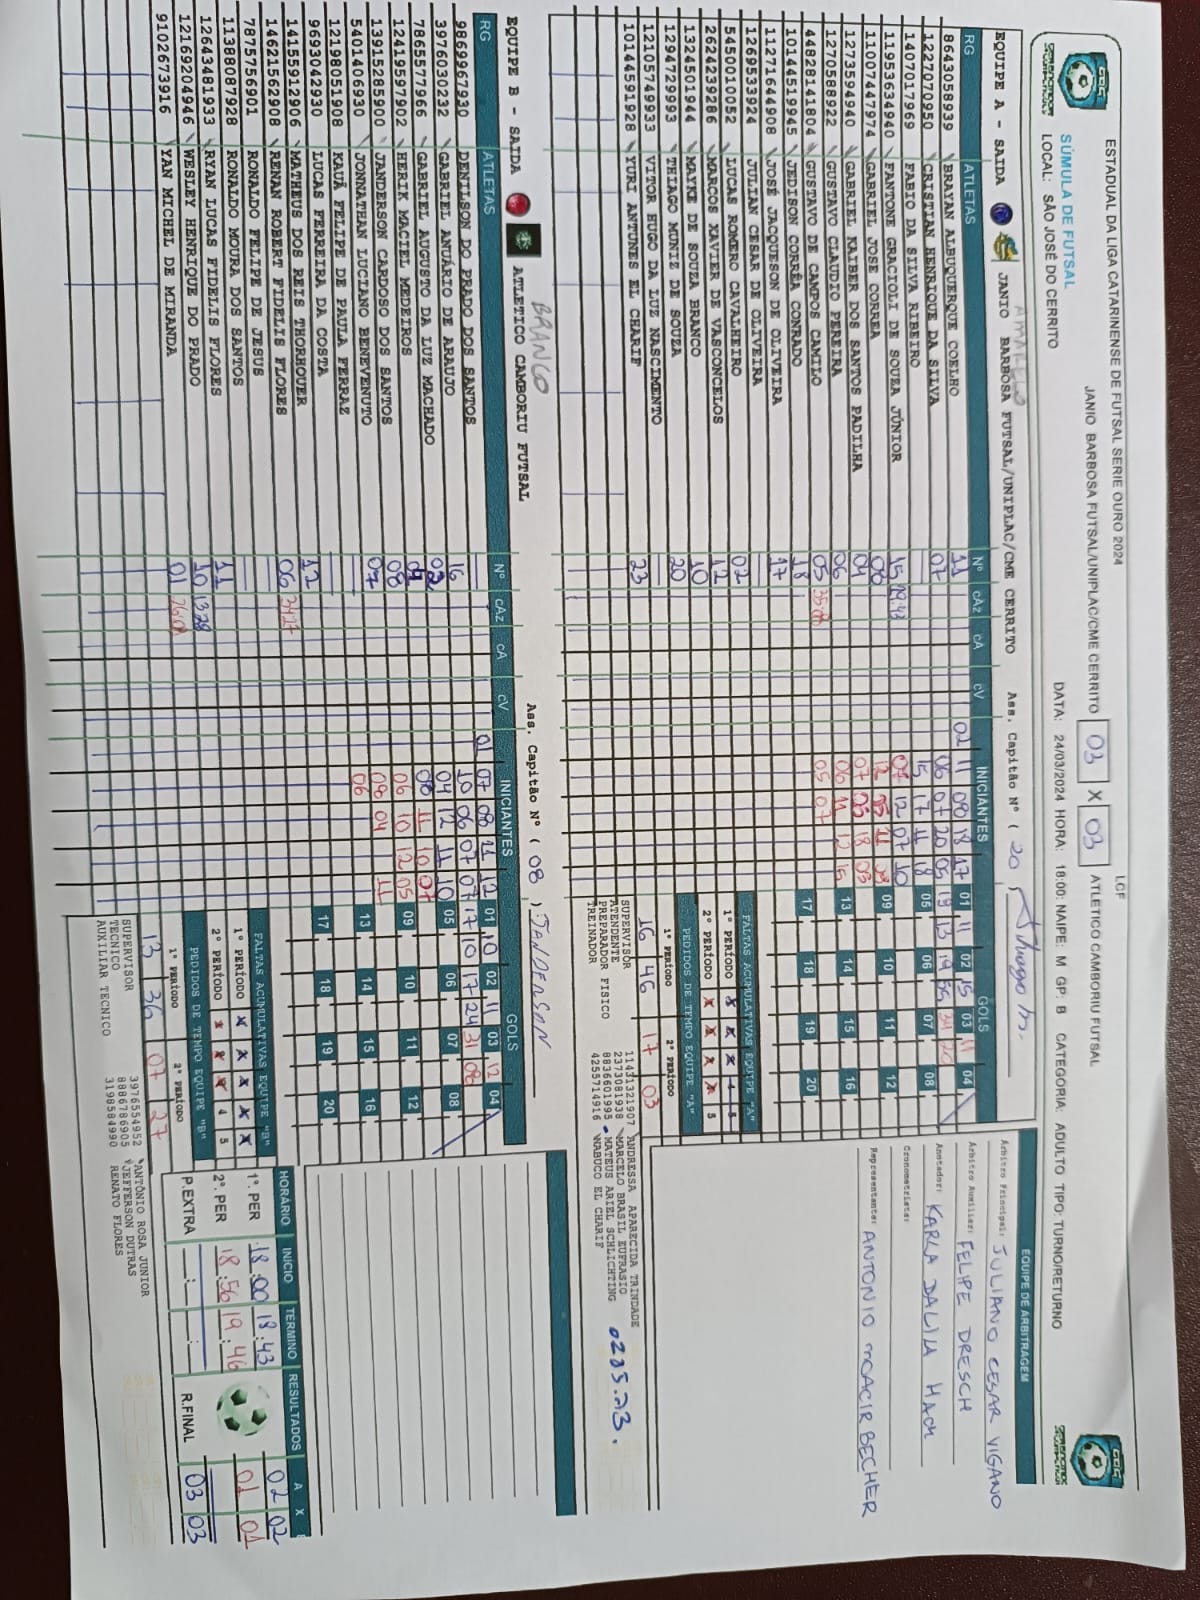 ESTADUAL DA LIGA CATARINENSE DE FUTSAL SERIE OURO 2024
LCF
JANIO BARBOSA FUTSAL/UNIPLAC/CME CERRITO 03 X 03 ATLETICO CAMBORIU FUTSAL
SÚMULA DE FUTSAL
LOCAL: SÃO JOSÉ DO CERRITO
DATA: 24/03/2024 HORA: 18:00: NAIPE: M GP: B CATEGORIA: ADULTO TIPO: TURNO/RETURNO
AMARELO
EQUIPE A - SAIDA JANIO BARBOSA FUTSAL/UNIPLAC/CME CERRITO Ass. Capitão Nº ( 20 )
RG ATLETAS Nº cAz cA cV INICIANTES GOLS
8643058939 BRAYAN ALBUQUERQUE COELHO 11
1227070950 CRISTIAN HENRIQUE DA SILVA 07
1407017969 FABIO DA SILVA RIBEIRO
11953634940 FANTONE GRACIOLI DE SOUZA JÚNIOR 15
11007447974 GABRIEL JOSE CORREA 08
12735594940 GABRIEL KAIBER DOS SANTOS PADILHA 04
1270588922 GUSTAVO CLAUDIO PEREIRA 06
4482814804 GUSTAVO DE CAMPOS CAMILO 05
10144519945 JEDISON CORRÊA CONRADO 18
11271644908 JOSÉ JACQUESON DE OLIVEIRA 17
1269533924 JULIAN CESAR DE OLIVEIRA
5450010052 LUCAS ROMERO CAVALHEIRO 02
2624239286 MARCOS XAVIER DE VASCONCELOS 12
1324501944 MAYKE DE SOUZA BRANCO 10
12947299993 THIAGO MUNIZ DE SOUZA 20
12105749933 VITOR HUGO DA LUZ NASCIMENTO
10144591928 YURI ANTUNES EL CHARIF 23
FALTAS ACUMULATIVAS EQUIPE "A"
1º PERÍODO
2º PERÍODO
PEDIDOS DE TEMPO EQUIPE "A"
1º PERÍODO 2º PERÍODO
16 46 17 03
SUPERVISOR 11431321907 ANDRESSA APARECIDA TRINDADE
ATENDENTE 2373081938 MARCELO BRASIL EUFRASIO
PREPARADOR FISICO 8836601995 MATEUS ARIEL SCHLICHTING
TREINADOR 4255714916 WABUCO EL CHARIF
EQUIPE DE ARBITRAGEM
Árbitro Principal: JULIANO CESAR VIGANO
Árbitro Auxiliar: FELIPE DRESCH
Anotador: KARLA DALILA HACK
Cronometrista:
Representante: ANTONIO MOACIR BECHER
BRANCO
EQUIPE B - SAIDA ATLETICO CAMBORIU FUTSAL Ass. Capitão Nº ( 08 ) JANDERSON
RG ATLETAS Nº cAz cA cV INICIANTES GOLS
9869967930 DENILSON DO PRADO DOS SANTOS 16
3976030232 GABRIEL ANUÁRIO DE ARAUJO 02
7865577966 GABRIEL AUGUSTO DA LUZ MACHADO
12419597902 HERIK MACIEL MEDEIROS 08
13915285900 JANDERSON CARDOSO DOS SANTOS 07
5401406930 JONNATHAN LUCIANO BENEVENUTO
12198051908 KAUÃ FELIPE DE PAULA FERRAZ
9693042930 LUCAS FERREIRA DA COSTA
14155912906 MATHEUS DOS REIS THORHOUER 12
14621562908 RENAN ROBERT FIDELIS FLORES 06 34:27
7875756901 RONALDO FELIPE DE JESUS
11388087928 RONALDO MOURA DOS SANTOS 11
12643481933 RYAN LUCAS FIDELIS FLORES 10 13:28
12169204946 WESLEY HENRIQUE DO PRADO 01
9102673916 YAN MICHEL DE MIRANDA
FALTAS ACUMULATIVAS EQUIPE "B"
1º PERÍODO
2º PERÍODO
PEDIDOS DE TEMPO EQUIPE "B"
1º PERÍODO 2º PERÍODO
13 36 07 27
SUPERVISOR 3976554952 ANTÔNIO ROSA JUNIOR
TECNICO 8886786905 JEFFERSON DUTRAS
AUXILIAR TECNICO 3198584990 RENATO FLORES
HORÁRIO INÍCIO TERMINO RESULTADOS A X
1º. PER 18:00 18:43 02 02
2º. PER 18:56 19:46 01 01
P.EXTRA R.FINAL 03 03